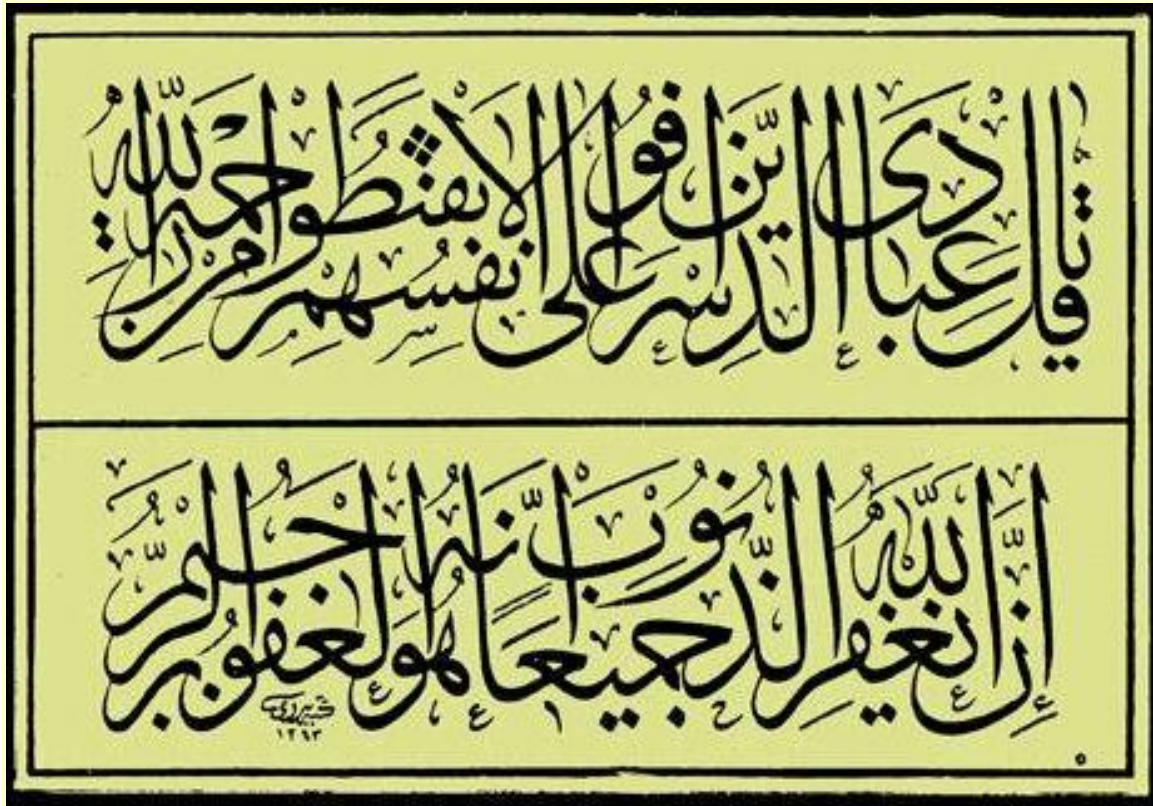 قل يا عبادي الذين أسرفوا على أنفسهم لا تقنطوا من رحمة الله
إن الله يغفر الذنوب جميعا إنه هو الغفور الرحيم
١٢٩٣
٥